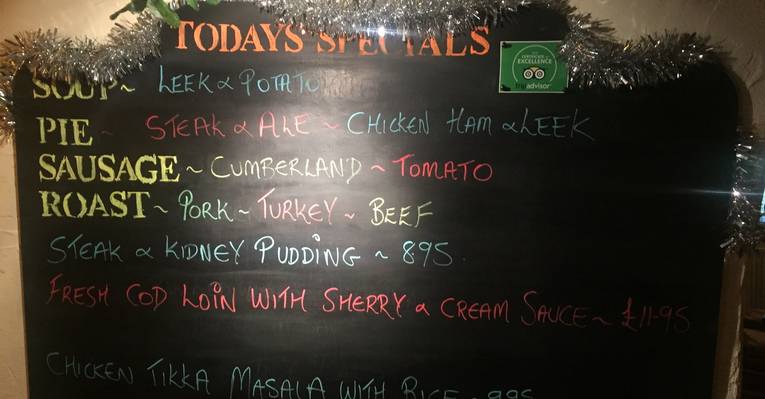 TODAYS SPECIALS
CERTIFICATE of EXCELLENCE
tripadvisor
SOUP ~ LEEK & POTATO
PIE ~ STEAK & ALE ~ CHICKEN HAM & LEEK
SAUSAGE ~ CUMBERLAND ~ TOMATO
ROAST ~ PORK ~ TURKEY ~ BEEF
STEAK & KIDNEY PUDDING ~ 895.
FRESH COD LOIN WITH SHERRY & CREAM SAUCE ~ £11-95
CHICKEN TIKKA MASALA WITH RICE ~ 995